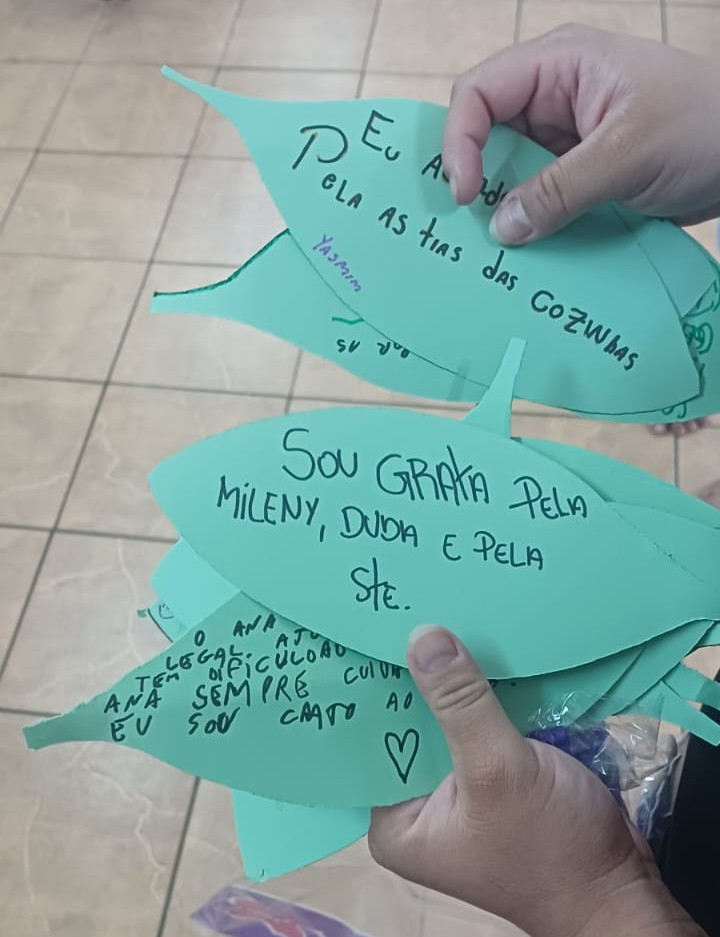 Eu
PELA AS tIAS dAS COZNhAS
YASMIM
SOU GRATA PELA
MILENY, DUDA E PELA
Ste.
O ANA
LEGAL.
TEM DIFICULDAD
ANA SEMPRE CUIDA
EU SOU GRATO AO